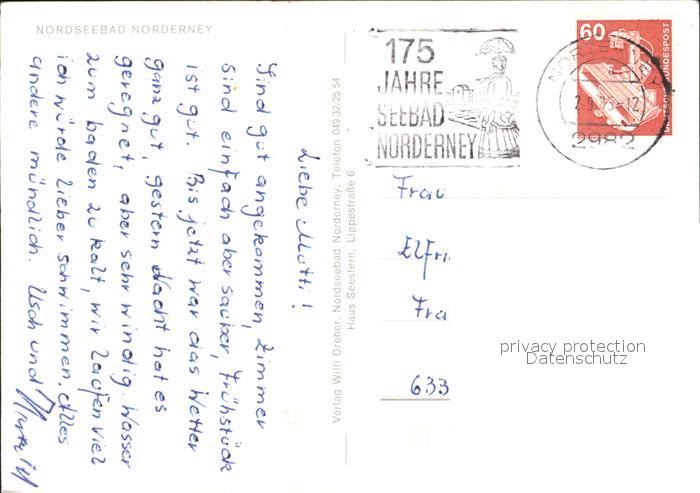 NORDSEEBAD NORDERNEY
Liebe Mutti!
Sind gut angekommen, Zimmer
sind einfach aber sauber, Frühstück
ist gut. Bis jetzt war das Wetter
ganz gut, gestern Nacht hat es
geregnet, aber sehr windig. Wasser
zum baden zu kalt, wir laufen viel
ich würde lieber schwimmen. Alles
andere mündlich. Usch und
Verlag Willi Dreher, Nordseebad Norderney, Telefon 049 32/25 54
Haus Seestern, Lippestraße 6
175
JAHRE
SEEBAD
NORDERNEY
60
DEUTSCHE BUNDESPOST
2982
Frau
Elfri
Fra
633
privacy protection
Datenschutz